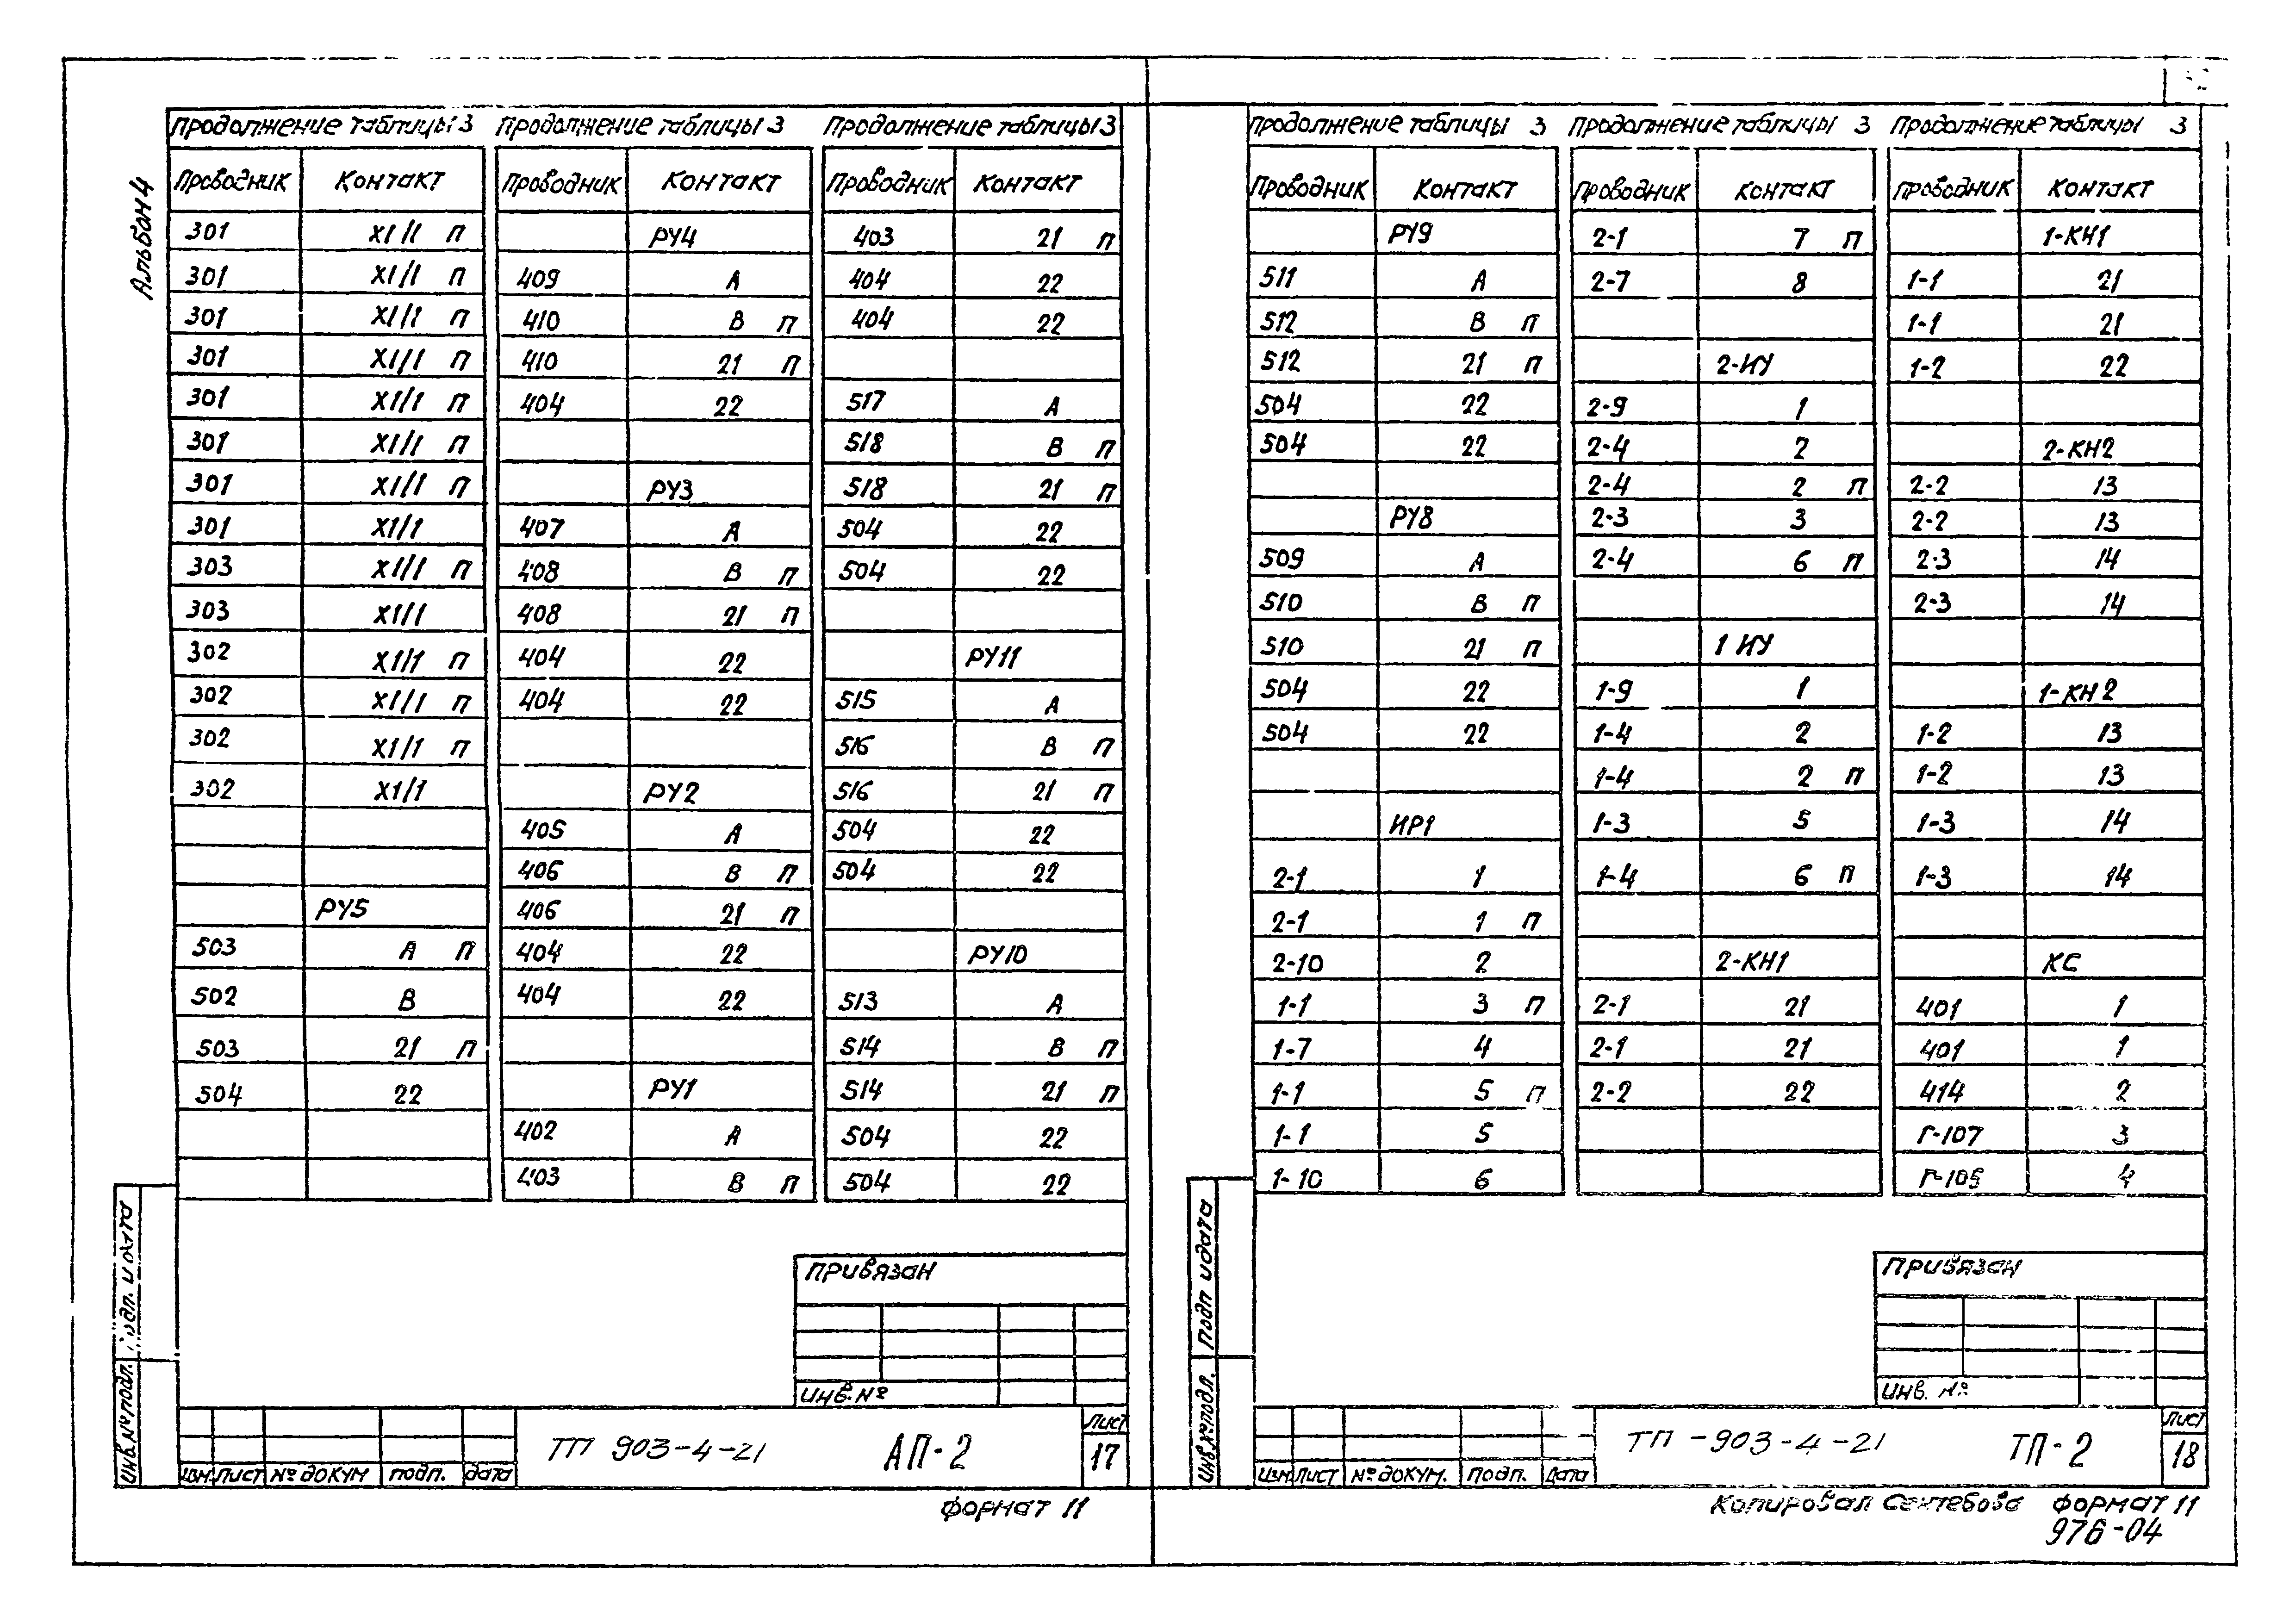 Альбом 4
Продолжение таблицы 3
Проводник Контакт
301 X1/1 П
301 X1/1 П
301 X1/1 П
301 X1/1 П
301 X1/1 П
301 X1/1 П
301 X1/1 П
301 X1/1
303 X1/1 П
303 X1/1
302 X1/1 П
302 X1/1 П
302 X1/1 П
302 X1/1
РУ5
503 А П
502 В
503 21 П
504 22
Продолжение таблицы 3
Проводник Контакт
РУ4
409 А
410 В П
410 21 П
404 22
РУ3
407 А
408 В П
408 21 П
404 22
404 22
РУ2
405 А
406 В П
406 21 П
404 22
404 22
РУ1
402 А
403 В П
Продолжение таблицы 3
Проводник Контакт
403 21 П
404 22
404 22
517 А
518 В П
518 21 П
504 22
504 22
РУ11
515 А
516 В П
516 21 П
504 22
504 22
РУ10
513 А
514 В П
514 21 П
504 22
504 22
Привязан
Инв. №
Инв. № подл. Подп. и дата
Изм. Лист № докум подп. дата
ТП 903-4-21 АП-2
Лист
17
Формат 11
Продолжение таблицы 3
Проводник Контакт
РУ9
511 А
512 В П
512 21 П
504 22
504 22
РУ8
509 А
510 В П
510 21 П
504 22
504 22
ИР1
2-1 1
2-1 1 П
2-10 2
1-1 3 П
1-7 4
1-1 5 П
1-1 5
1-10 6
Продолжение таблицы 3
Проводник Контакт
2-1 7 П
2-7 8
2-ИУ
2-9 1
2-4 2
2-4 2 П
2-3 3
2-4 6 П
1 ИУ
1-9 1
1-4 2
1-4 2 П
1-3 5
1-4 6 П
2-КН1
2-1 21
2-1 21
2-2 22
Продолжение таблицы 3
Проводник Контакт
1-КН1
1-1 21
1-1 21
1-2 22
2-КН2
2-2 13
2-2 13
2-3 14
2-3 14
1-КН2
1-2 13
1-2 13
1-3 14
1-3 14
КС
401 1
401 1
414 2
Г-107 3
Г-105 4
Привязан
Инв. №
Инв. № подл. Подп и дата
Изм Лист № докум. Подп. Дата
ТП-903-4-21 ТП-2
Лист
18
Копировал Формат 11
976-04